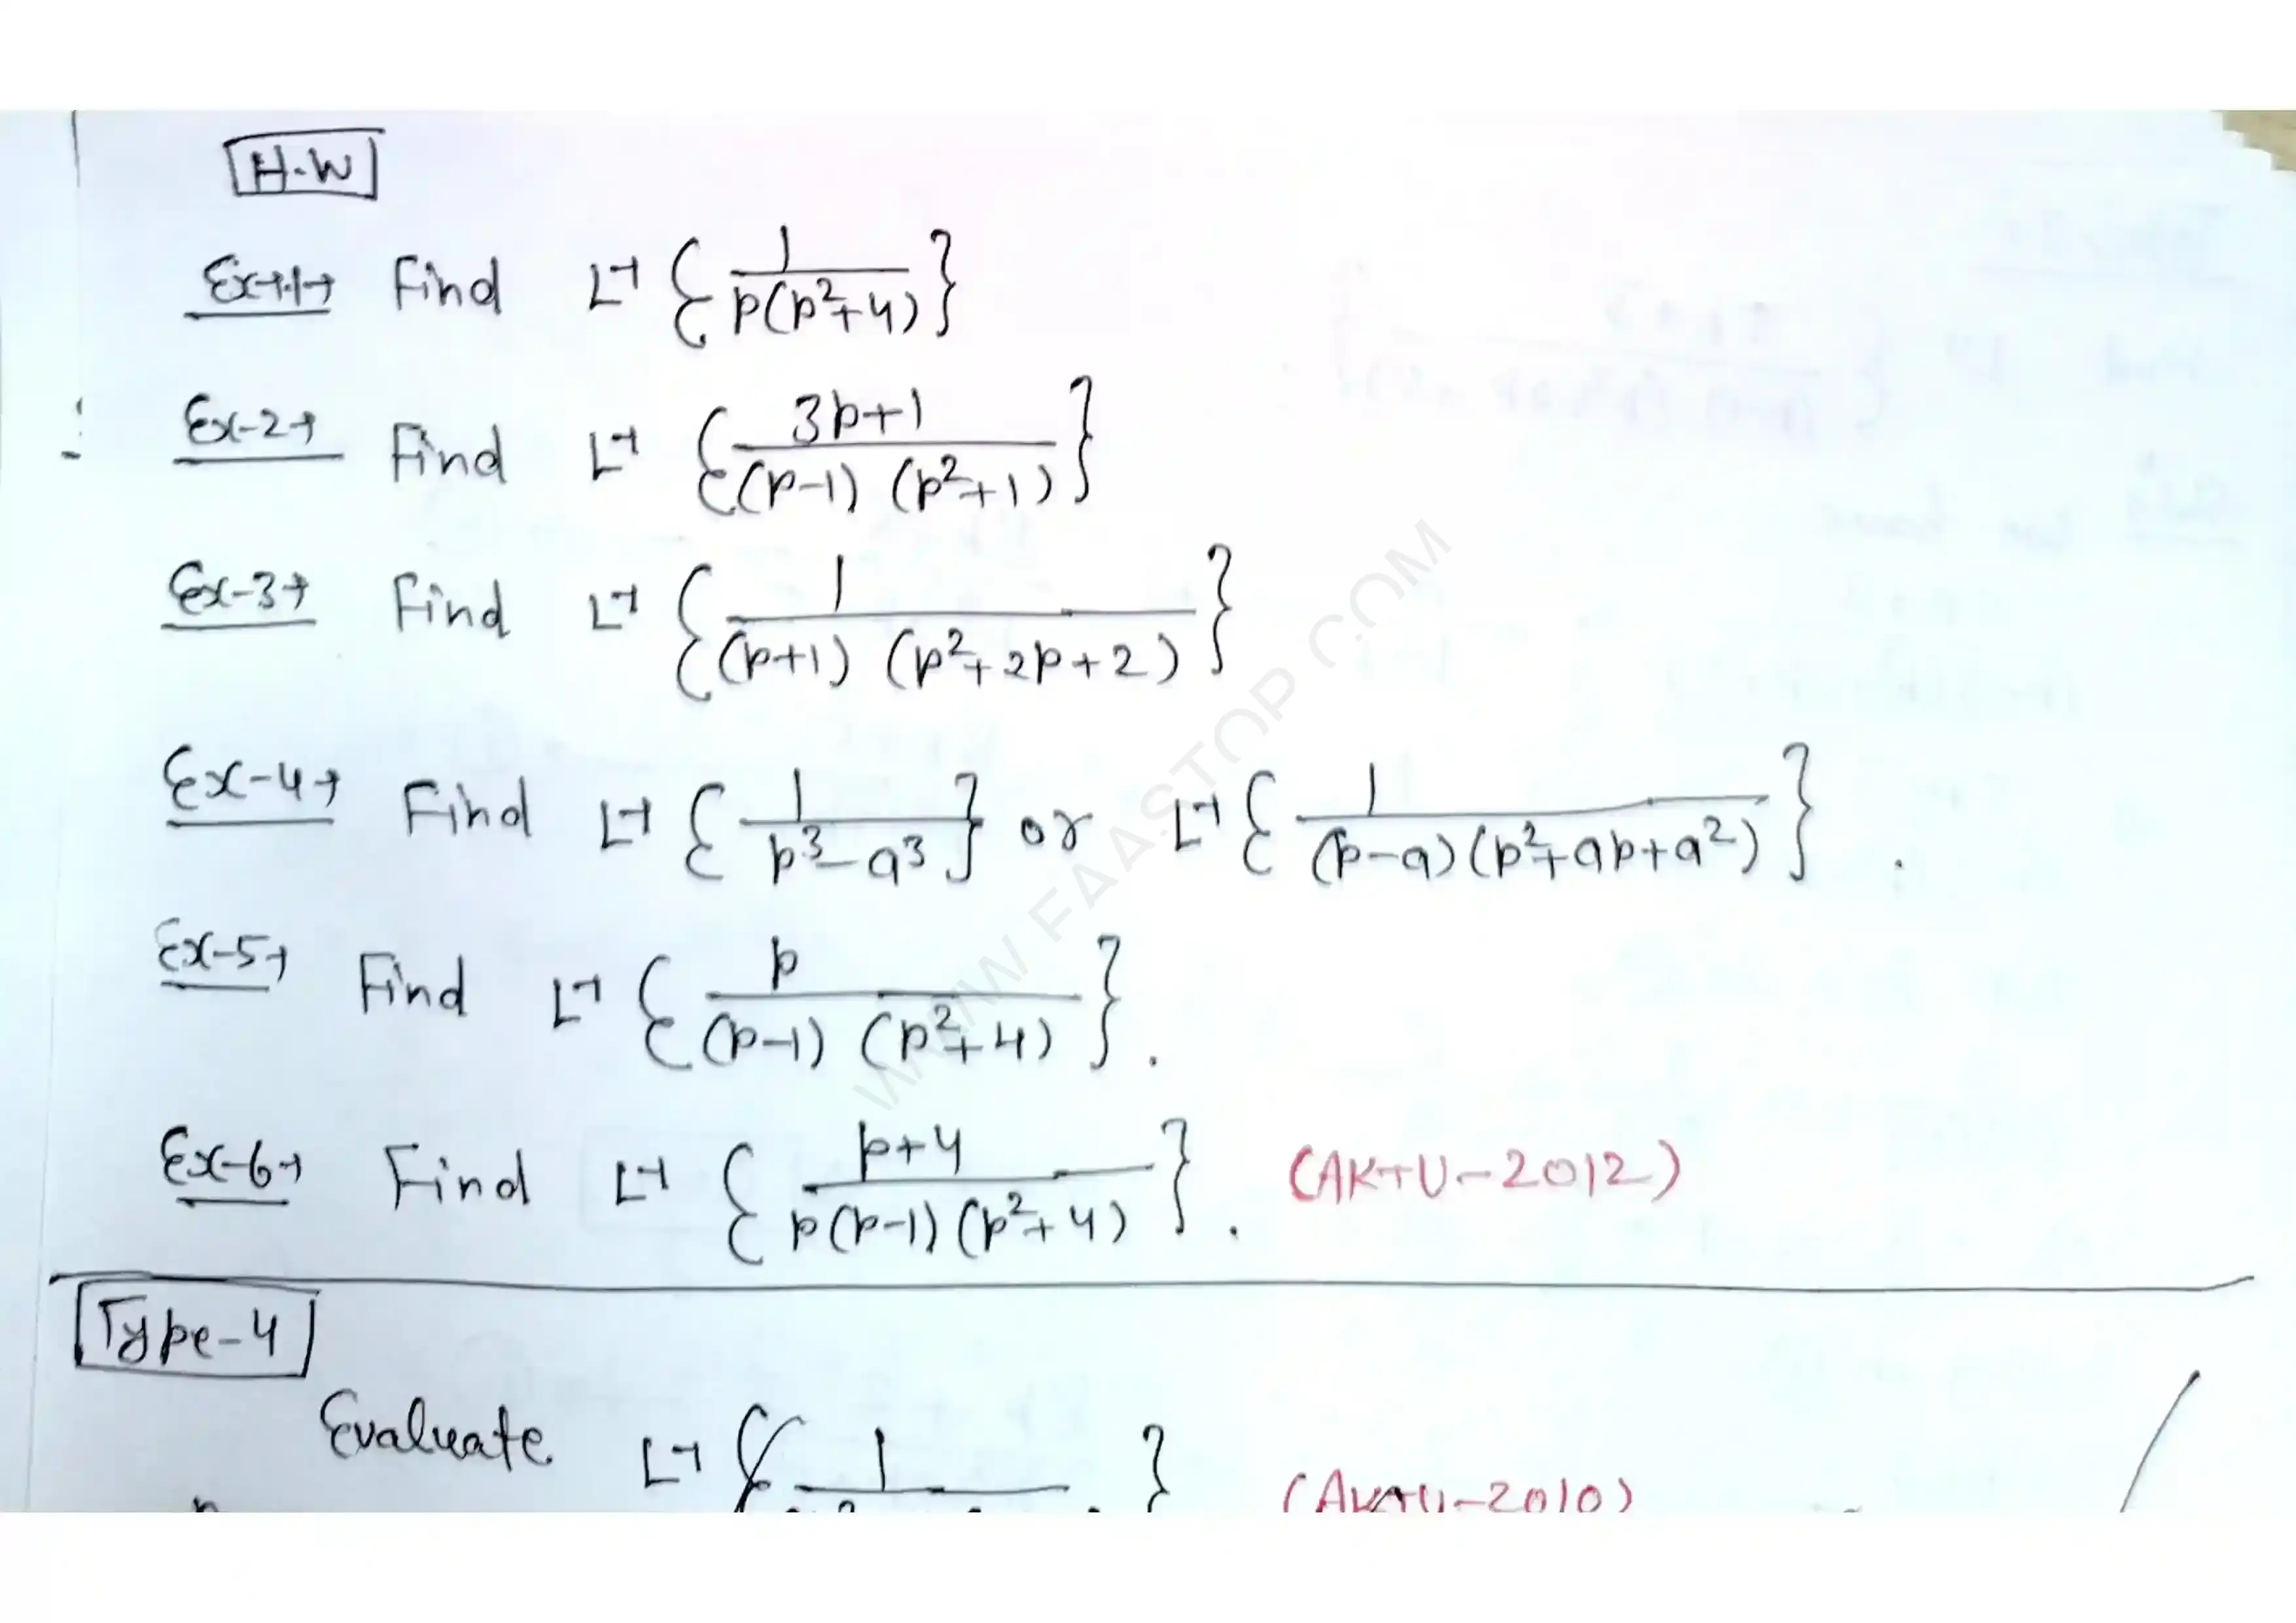 H.W
Ex-1→ Find L⁻¹ { 1 / p(p²+4) }
Ex-2→ Find L⁻¹ { 3p+1 / (p-1) (p²+1) }
Ex-3→ Find L⁻¹ { 1 / (p+1) (p²+2p+2) }
Ex-4→ Find L⁻¹ { 1 / p³-a³ } or L⁻¹ { 1 / (p-a)(p²+ap+a²) } .
Ex-5→ Find L⁻¹ { p / (p-1) (p²+4) } .
Ex-6→ Find L⁻¹ { p+4 / p(p-1)(p²+4) } . (AKTU-2012)
Type-4
Evaluate L⁻¹ { 1 } (AKTU-2010)
WWW.FAASTOP.COM